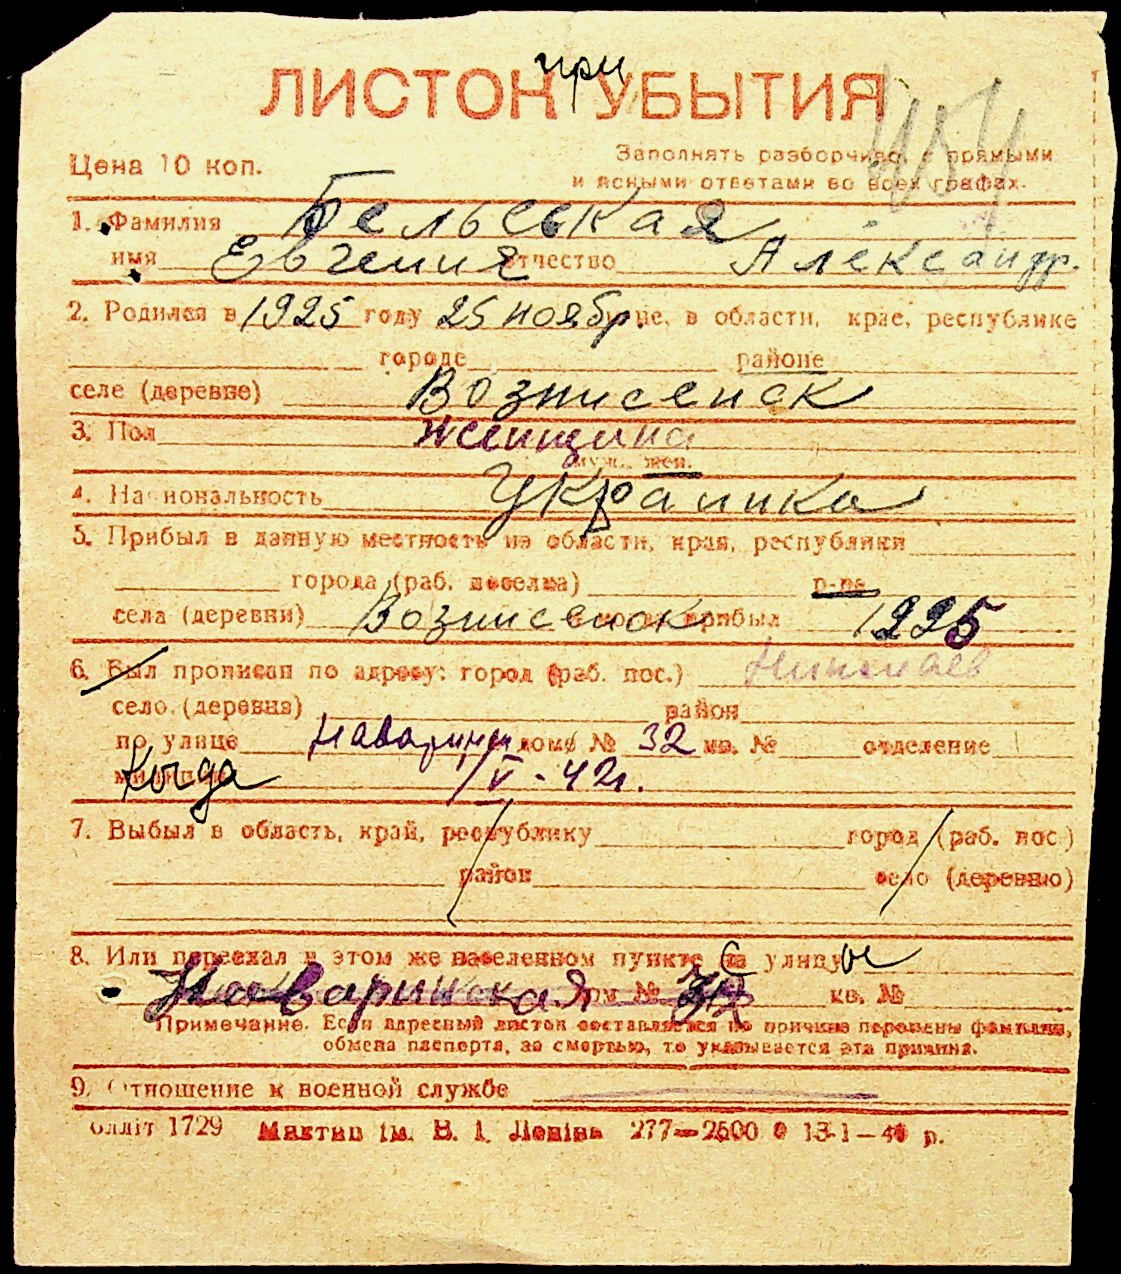 при
ЛИСТОК УБЫТИЯ
Цена 10 коп.
Заполнять разборчиво, с прямыми
и ясными ответами во всех графах.
1. Фамилия Бельская
имя Евгения отчество Александр.
2. Родился в 1925 году 25 ноябр. в области, крае, республике
городе районе
селе (деревне) Вознисенск
3. Пол Женщина
муж., жен.
4. Национальность Украинка
5. Прибыл в данную местность из области, края, республики
города (раб. поселка) р-на
села (деревни) Вознисенск прибыл 1925
6. Был прописан по адресу: город (раб. пос.) Николаев
село (деревня) район
по улице Наварин дом № 32 кв. № отделение
милиции Когда V - 42 г.
7. Выбыл в область, край, республику город (раб. пос.)
район село (деревню)
8. Или переехал в этом же населенном пункте с улицы
Наваринская дом № 32 кв. №
Примечание. Если адресный листок составляется по причине перемены фамилии,
обмена паспорта, за смертью, то указывается эта причина.
9. Отношение к военной службе
олліт 1729 Миктип ім. В. І. Леніна 277—2500 13-1—4 р.